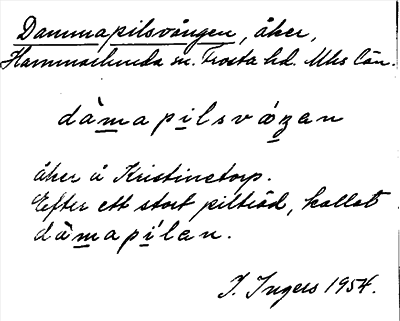 Dammapilsvången, åker,
Hammarlunda sn. Frosta hd. Mhs län.
dàmapilsvåʒen
åker å Kristinetorp.
Efter ett stort pilträd, kallat
dàmapílen.
I. Ingers 1954.